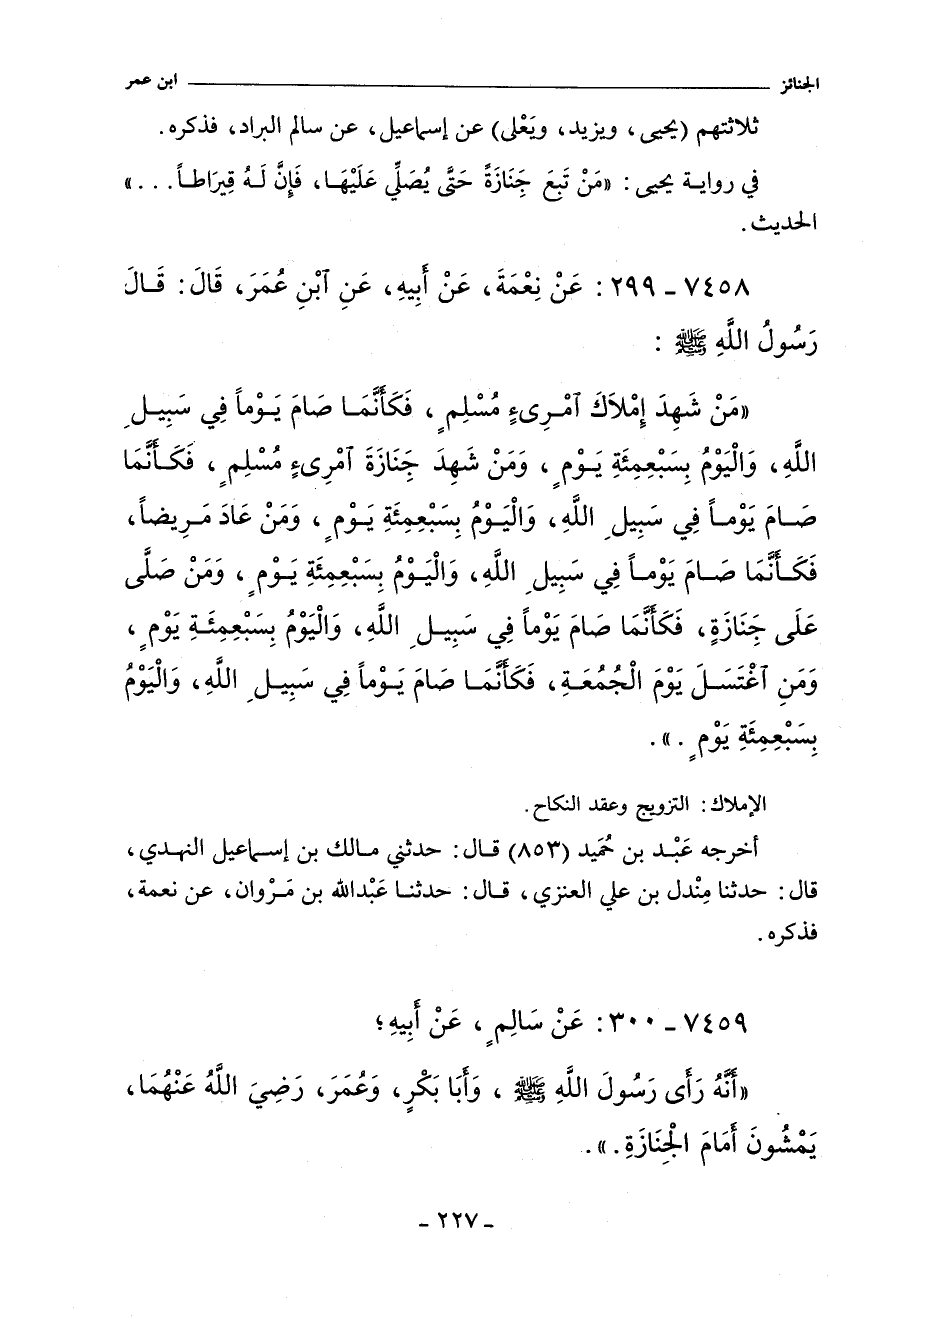 الجنائز ابن عمر
ثلاثتهم (يحيى، ويزيد، ويَعْلى) عن إسماعيل، عن سالم البراد، فذكره.
في رواية يحيى: «مَنْ تَبِعَ جَنَازَةً حَتَّى يُصَلِّي عَلَيْهَا، فَإِنَّ لَهُ قِيرَاطاً...»
الحديث.
٧٤٥٨ - ٢٩٩: عَنْ نِعْمَةَ، عَنْ أَبِيهِ، عَنِ ٱبْنِ عُمَرَ، قَالَ: قَالَ
رَسُولُ اللَّهِ ﷺ:
«مَنْ شَهِدَ إِمْلاَكَ ٱمْرِىءٍ مُسْلِمٍ، فَكَأَنَّمَا صَامَ يَوْماً فِي سَبِيلِ
اللَّهِ، وَالْيَوْمُ بِسَبْعِمِئَةِ يَوْمٍ، وَمَنْ شَهِدَ جَنَازَةَ ٱمْرِىءٍ مُسْلِمٍ، فَكَأَنَّمَا
صَامَ يَوْماً فِي سَبِيلِ اللَّهِ، وَالْيَوْمُ بِسَبْعِمِئَةِ يَوْمٍ، وَمَنْ عَادَ مَرِيضاً،
فَكَأَنَّمَا صَامَ يَوْماً فِي سَبِيلِ اللَّهِ، وَالْيَوْمُ بِسَبْعِمِئَةِ يَوْمٍ، وَمَنْ صَلَّى
عَلَى جَنَازَةٍ، فَكَأَنَّمَا صَامَ يَوْماً فِي سَبِيلِ اللَّهِ، وَالْيَوْمُ بِسَبْعِمِئَةِ يَوْمٍ،
وَمَنِ ٱغْتَسَلَ يَوْمَ الْجُمُعَةِ، فَكَأَنَّمَا صَامَ يَوْماً فِي سَبِيلِ اللَّهِ، وَالْيَوْمُ
بِسَبْعِمِئَةِ يَوْمٍ.».
الإملاك: التزويج وعقد النكاح.
أخرجه عَبْد بن حُميد (٨٥٣) قال: حدثني مالك بن إسماعيل النهدي،
قال: حدثنا مِنْدل بن علي العنزي، قال: حدثنا عَبْدالله بن مَرْوان، عن نعمة،
فذكره.
٧٤٥٩ - ٣٠٠: عَنْ سَالِمٍ، عَنْ أَبِيهِ؛
«أَنَّهُ رَأَى رَسُولَ اللَّهِ ﷺ، وَأَبَا بَكْرٍ، وَعُمَرَ، رَضِيَ اللَّهُ عَنْهُمَا،
يَمْشُونَ أَمَامَ الْجِنَازَةِ.».
- ٢٢٧ -